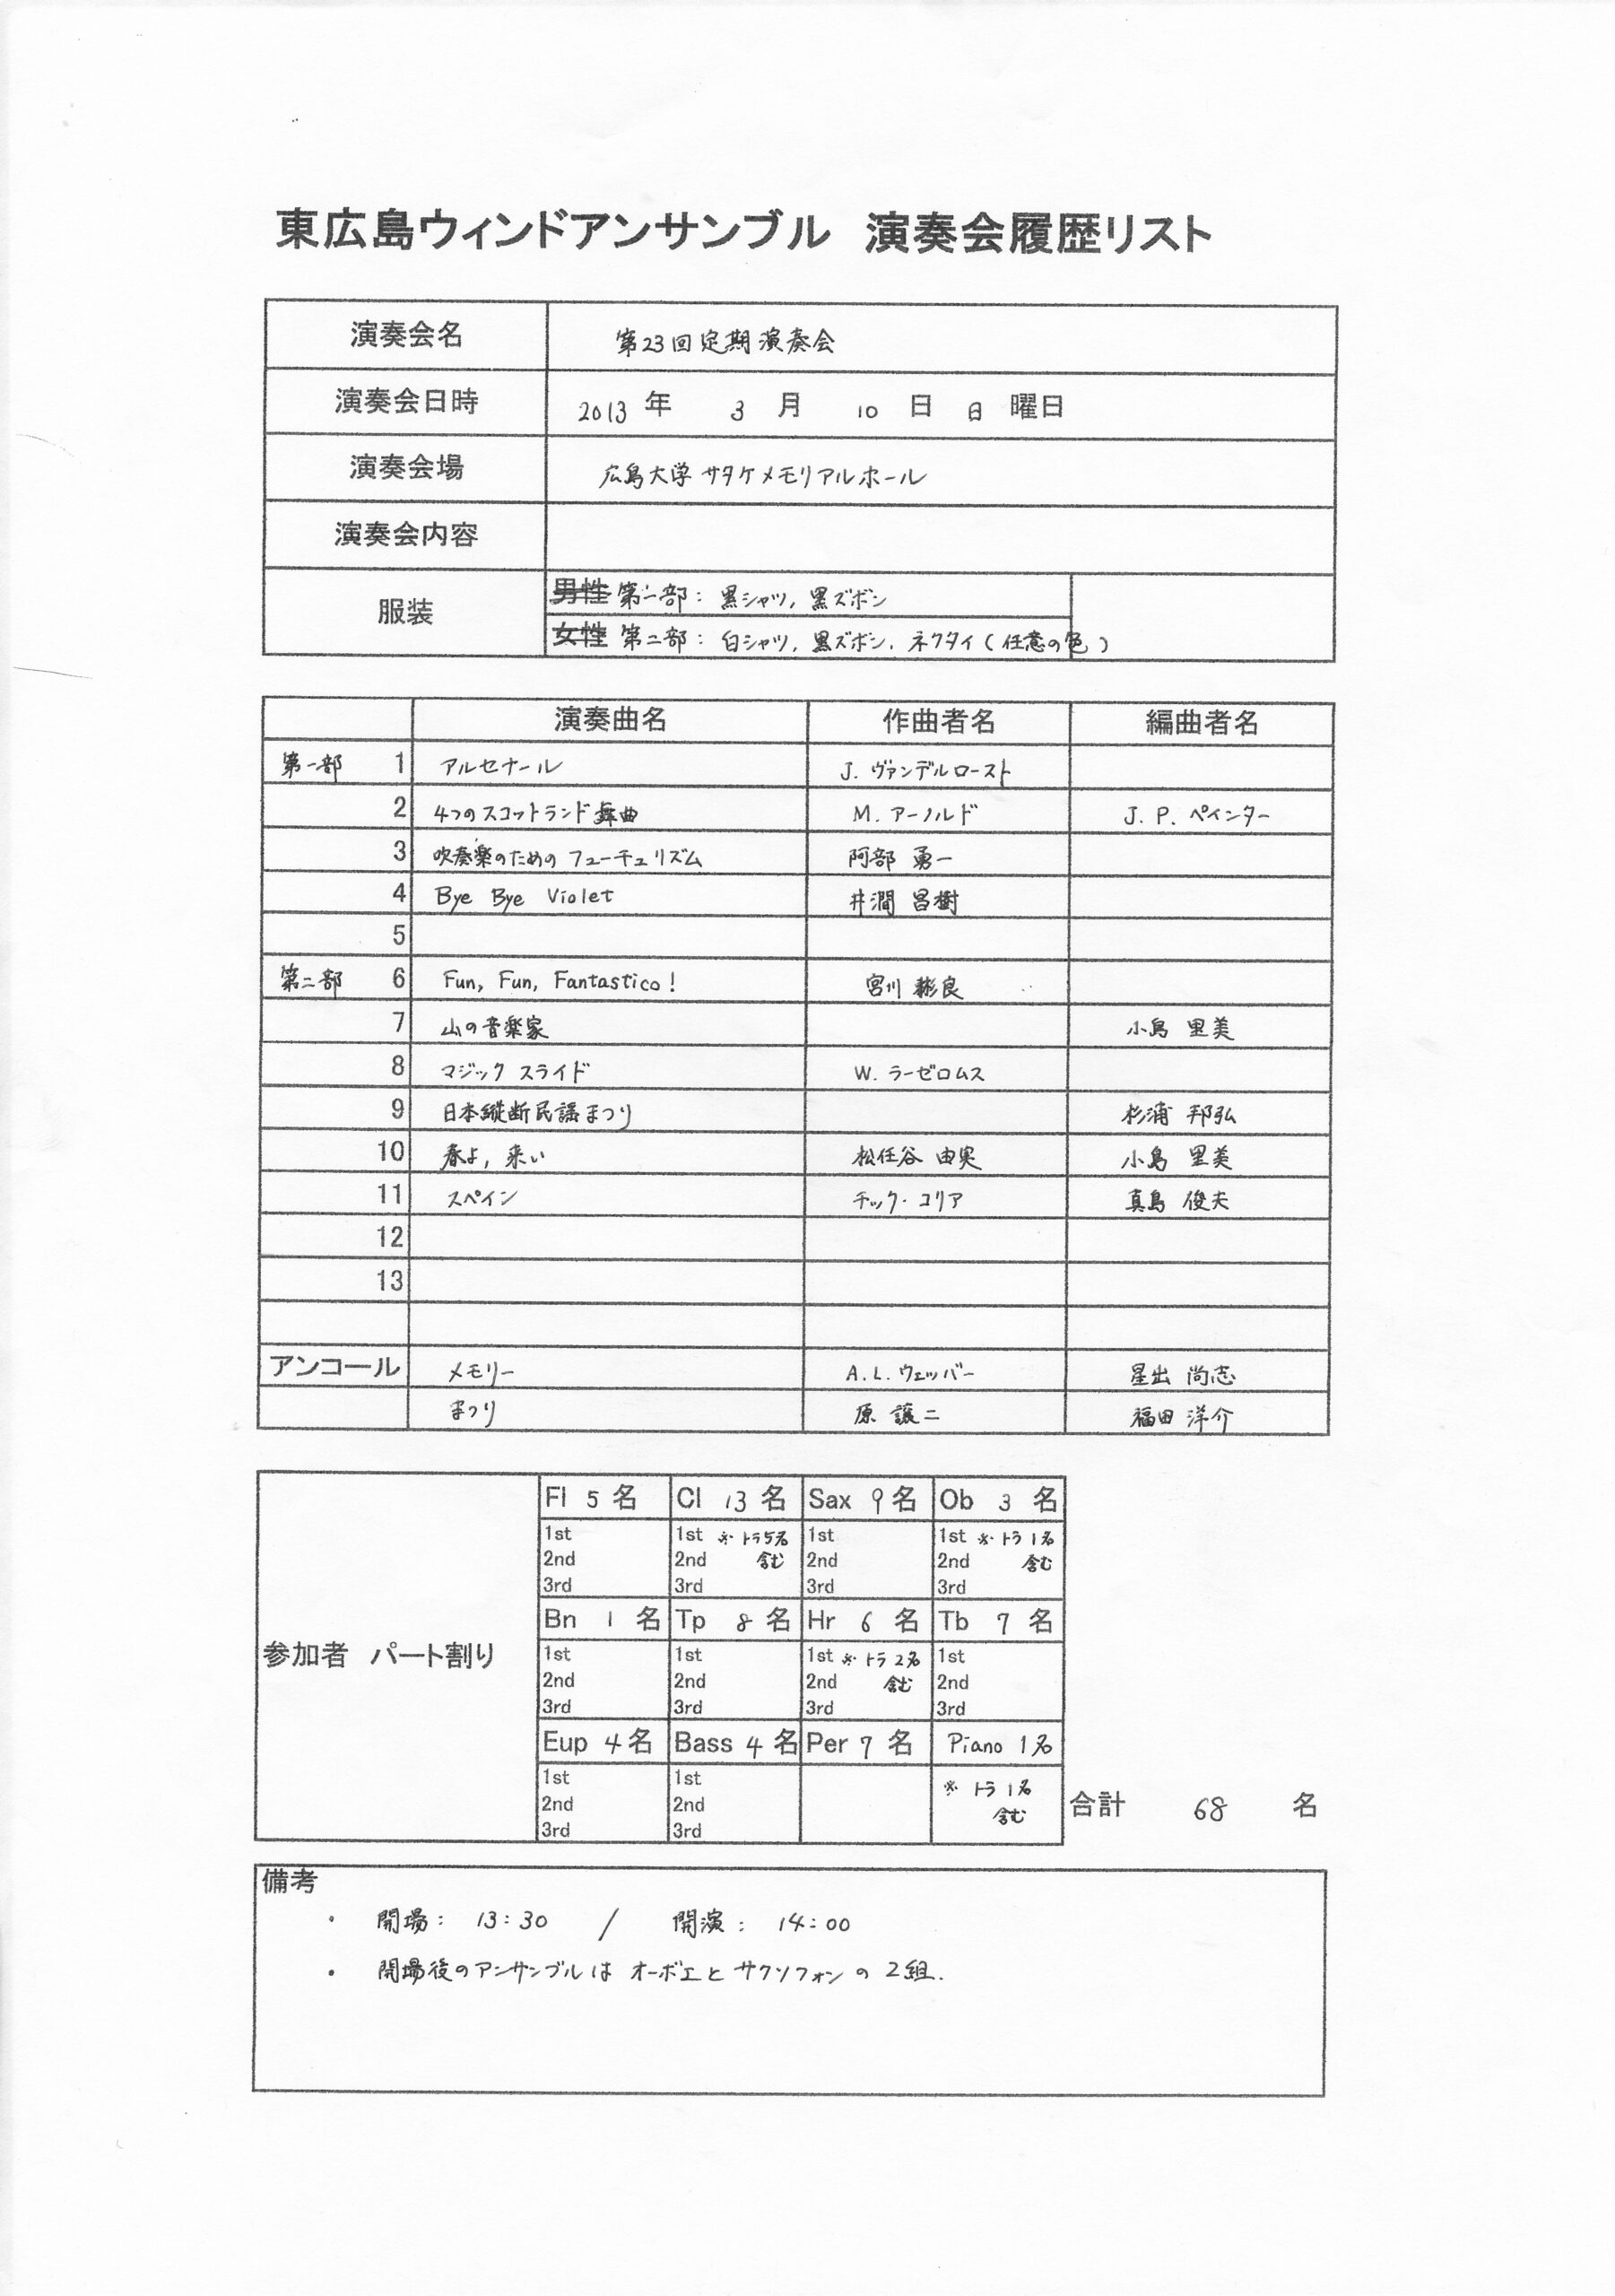 東広島ウィンドアンサンブル 演奏会履歴リスト
演奏会名 第23回定期演奏会
演奏会日時 2013 年 3 月 10 日 日 曜日
演奏会場 広島大学サタケメモリアルホール
演奏会内容
服装
男性 第一部: 黒シャツ, 黒ズボン
女性 第二部: 白シャツ, 黒ズボン, ネクタイ(任意の色)
演奏曲名 作曲者名 編曲者名
第一部 1 アルセナール J. ヴァンデルロースト
2 4つのスコットランド舞曲 M. アーノルド J. P. ペインター
3 吹奏楽のための フューチュリズム 阿部 勇一
4 Bye Bye Violet 井澗 昌樹
5
第二部 6 Fun, Fun, Fantastico! 宮川 彬良
7 山の音楽家 小島 里美
8 マジック スライド W. ラーゼロムス
9 日本縦断民謡まつり 杉浦 邦弘
10 春よ, 来い 松任谷 由実 小島 里美
11 スペイン チック・コリア 真島 俊夫
12
13
アンコール メモリー A. L. ウェッバー 星出 尚志
まつり 原 譲二 福田 洋介
参加者 パート割り
Fl 5 名 Cl 13 名 Sax 9 名 Ob 3 名
1st 1st ※トラ5名 1st 1st ※トラ1名
2nd 2nd 含む 2nd 2nd 含む
3rd 3rd 3rd 3rd
Bn 1 名 Tp 8 名 Hr 6 名 Tb 7 名
1st 1st 1st ※トラ2名 1st
2nd 2nd 2nd 含む 2nd
3rd 3rd 3rd 3rd
Eup 4 名 Bass 4 名 Per 7 名 Piano 1名
1st 1st ※トラ1名
2nd 2nd 含む
3rd 3rd
合計 68 名
備考
・ 開場: 13:30 / 開演: 14:00
・ 開場後のアンサンブルは オーボエと サクソフォンの 2組.